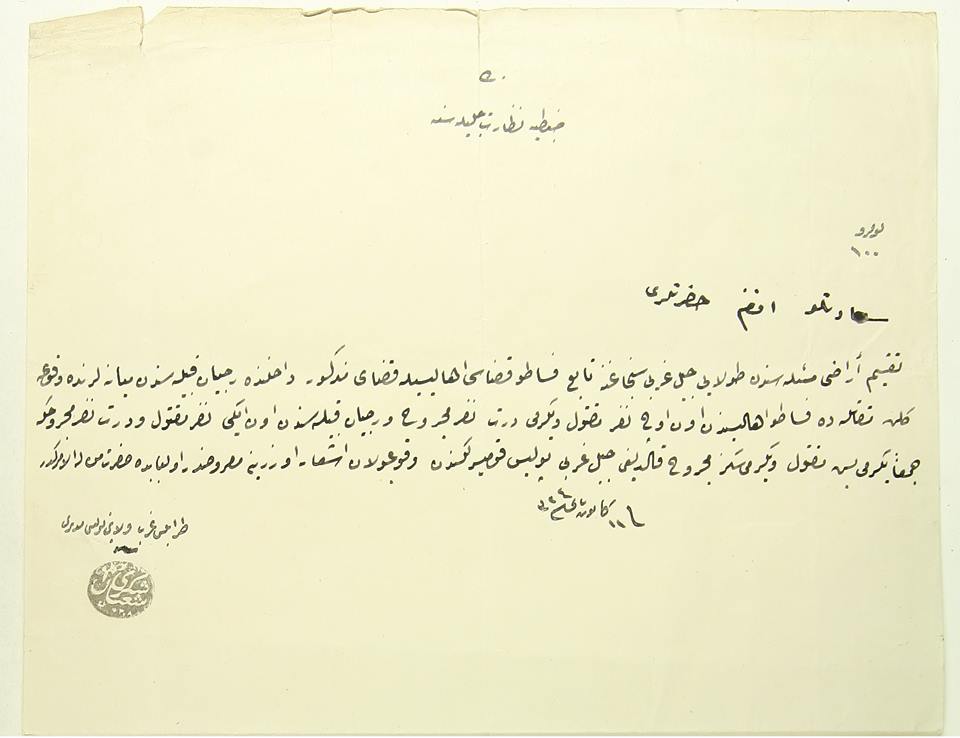 ضبطیه نظارت جلیله سنه
نومرو
١٠٠
سعادتلو افندم حضرتلری
تقسیم أراضی مسئله سندن طولایی جبل غربی سنجاغنه تابع فساطو قضاسی اهالیسیله قضای مذکور داخلنده رجبان قبیله سندن میانه لرنده وقوعه
کلن مقاتله ده فساطو اهالیسندن اون اوچ نفر مقتول ویکرمی درت نفر مجروح ورجبان قبیله سندن اون ایکی نفر مقتول ودرت نفر مجروح که
جمعاً یکرمی بش مقتول ویکرمی سکز مجروح قالدیغی جبل غربی پولیس قومیسرلکندن وقوعبولان اشعار اوزرینه معروضدر اولبابده حضرت من له الامرکدر
فی ١١ کانون ٣٢٤
طرابلس غرب ولایتی پولیس مدیری
شعبان شکری